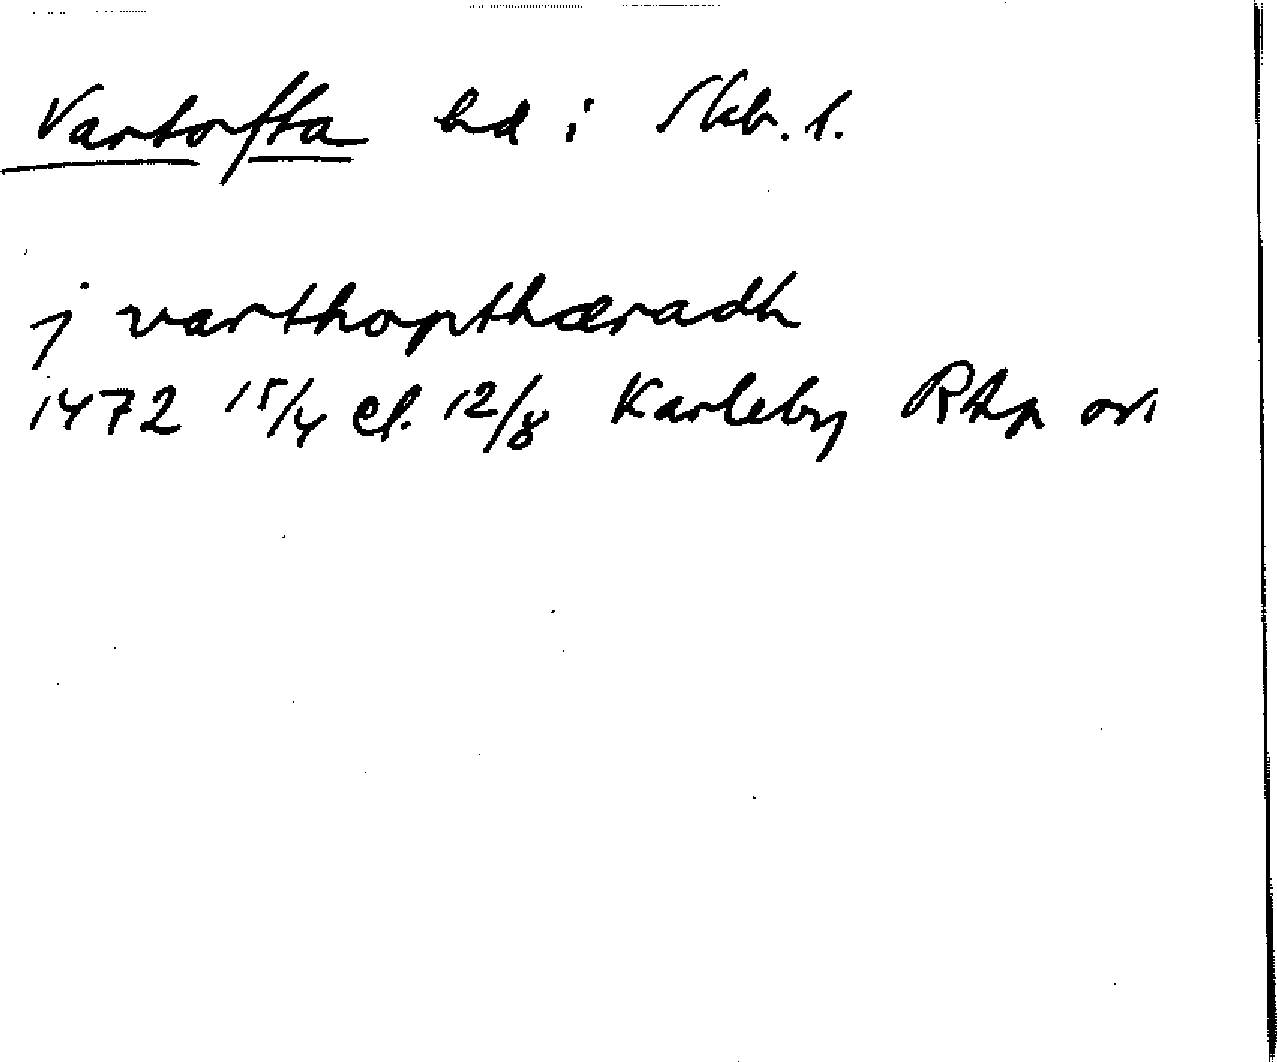 Vartofta hd i Skb. l.
j varthopthæradh
1472 15/4 el. 12/8 Karleby RAp or.